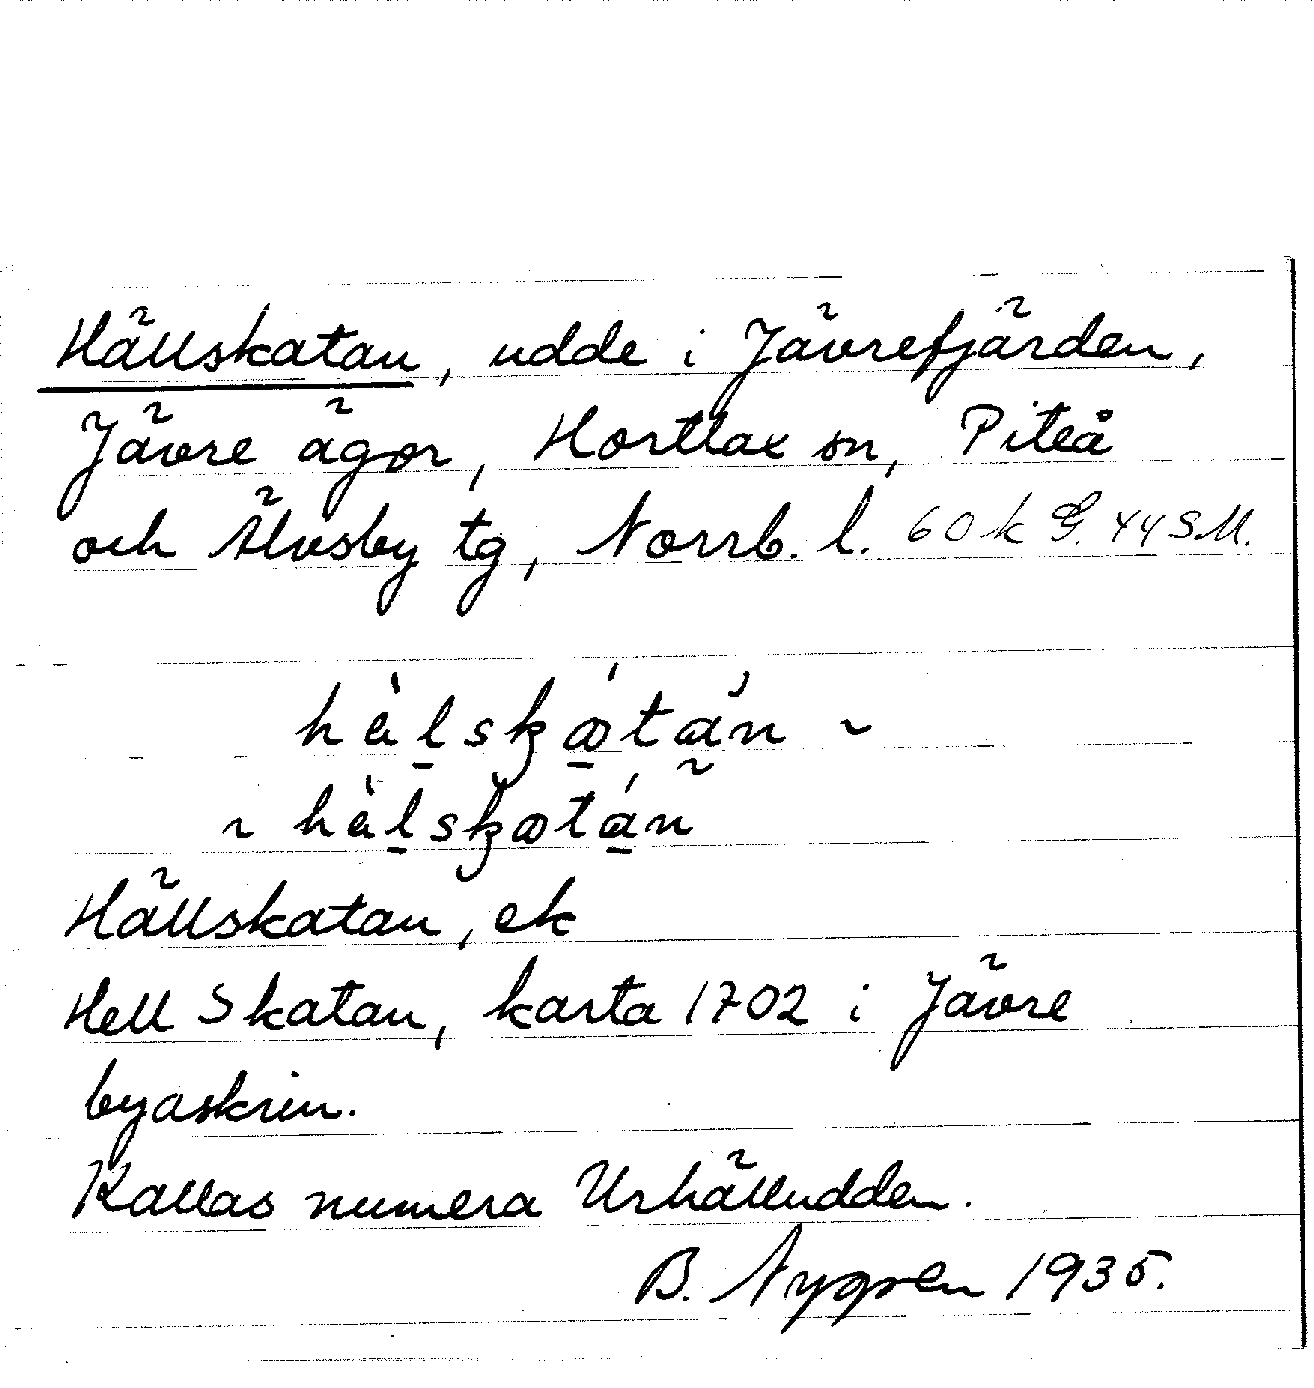 Hällskatan, udde i Jävrefjärden,
Jävre ägor, Hortlax sn, Piteå
och Älvsby tg, Norrb. l. 60 k G. 44 SM.
hàlskátan ~
~ hàlskatán
Hällskatan, ek
Hell Skatan, karta 1702 i Jävre
byaskrin.
Kallas numera Urhälludden.
B. Nygren 1935.